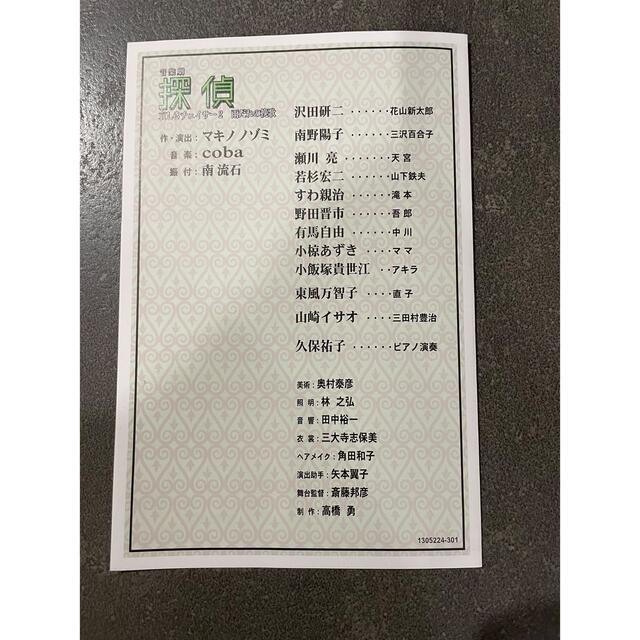 音楽劇
探偵
哀しきチェイサー2 雨だれの挽歌
作・演出：マキノノゾミ
音楽：coba
振付：南 流石
沢田研二 ・・・・・・花山新太郎
南野陽子 ・・・・・・三沢百合子
瀬川 亮 ・・・・・・天宮
若杉宏二 ・・・・・・山下鉄夫
すわ親治 ・・・・・・滝本
野田晋市 ・・・・・・吾郎
有馬自由 ・・・・・・中川
小椋あずき ・・・・ママ
小飯塚貴世江 ・・アキラ
東風万智子 ・・・・直子
山崎イサオ ・・・・三田村豊治
久保祐子 ・・・・・・ピアノ演奏
美術：奥村泰彦
照明：林 之弘
音響：田中裕一
衣裳：三大寺志保美
ヘアメイク：角田和子
演出助手：矢本翼子
舞台監督：斎藤邦彦
制作：高橋 勇
1305224-301